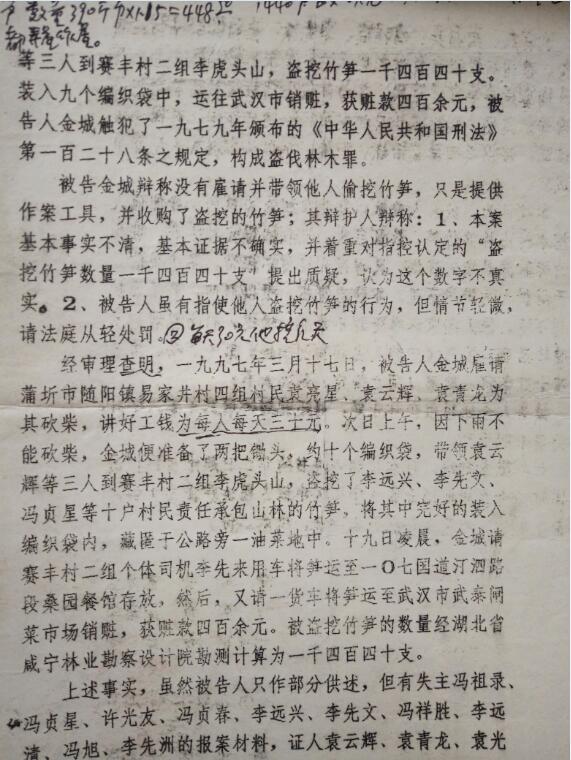 数量390斤 ×1.15=448 1440
等三人到赛丰村二组李虎头山，盗挖竹笋一千四百四十支。
装入九个编织袋中，运往武汉市销赃，获赃款四百余元，被
告人金城触犯了一九七九年颁布的《中华人民共和国刑法》
第一百二十八条之规定，构成盗伐林木罪。
被告金城辩称没有雇请并带领他人偷挖竹笋，只是提供
作案工具，并收购了盗挖的竹笋；其辩护人辩称：1、本案
基本事实不清，基本证据不确实，并着重对指控认定的“盗
挖竹笋数量一千四百四十支”提出质疑，认为这个数字不真
实。2、被告人虽有指使他人盗挖竹笋的行为，但情节轻微，
请法庭从轻处罚。每天30元
经审理查明，一九九七年三月十七日，被告人金城雇请
蒲圻市随阳镇易家井村四组村民袁亮星、袁云辉、袁青龙为
其砍柴，讲好工钱为每人每天三十元。次日上午，因下雨不
能砍柴，金城便准备了两把锄头，约十个编织袋，带领袁云
辉等三人到赛丰村二组李虎头山，盗挖了李远兴、李先文、
冯贞星等十户村民责任承包山林的竹笋，将其中完好的装入
编织袋内，藏匿于公路旁一油菜地中。十九日凌晨，金城请
赛丰村二组个体司机李先来用车将笋运至一〇七国道汀泗路
段桑园餐馆存放，然后，又请一货车将笋运至武汉市武泰闸
菜市场销赃，获赃款四百余元。被盗挖竹笋的数量经湖北省
咸宁林业勘察设计院勘测计算为一千四百四十支。
上述事实，虽然被告人只作部分供述，但有失主冯祖录、
冯贞星、许光友、冯贞春、李远兴、李先文、冯祥胜、李远
清、冯旭、李先洲的报案材料，证人袁云辉、袁青龙、袁光